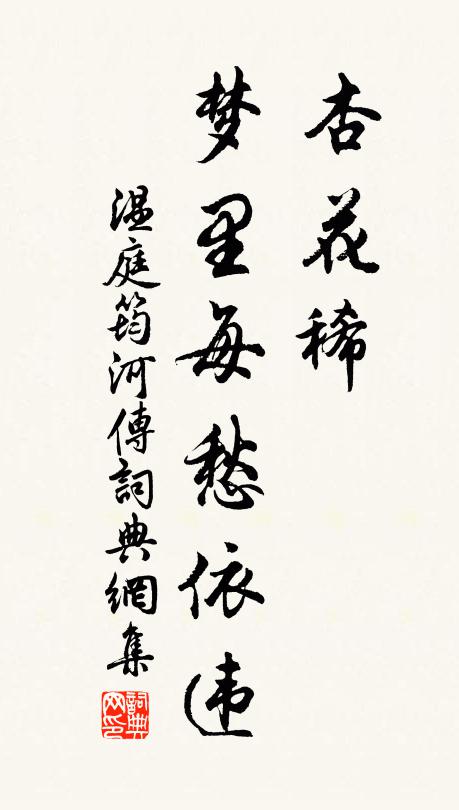 杏花稀
梦里每愁依违
温庭筠河傳詞典網集
詞典网印